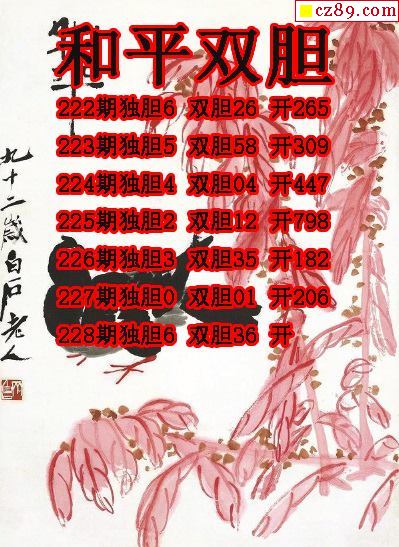 cz89.com
和平双胆
222期独胆6 双胆26 开265
223期独胆5 双胆58 开309
224期独胆4 双胆04 开447
225期独胆2 双胆12 开798
226期独胆3 双胆35 开182
227期独胆0 双胆01 开206
228期独胆6 双胆36 开
九十二岁白石老人